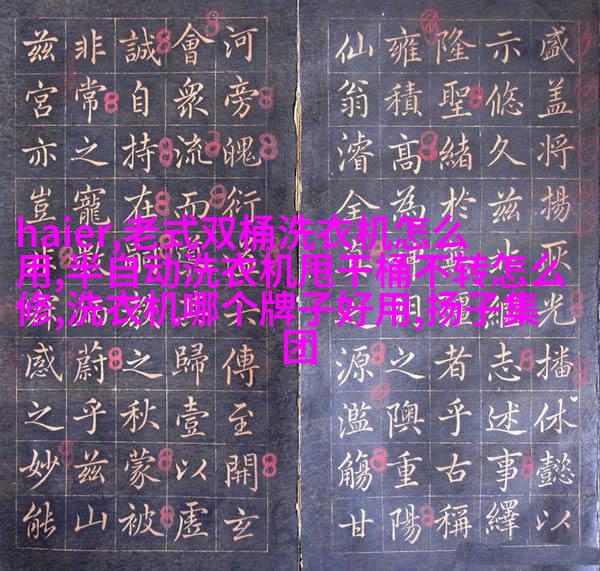 haier,老式双桶洗衣机怎么
用,半自动洗衣机甩干桶不转怎么
修,洗衣机哪个牌子好用,扬子集
团
盛盖将揚光播休懿以
示悠久兹志述事繹
隆聖緒於者乎古稱
雍積高為之隩重陽
仙翁濬全源滥觴甘
河旁魄衍傳至開玄
會衆流而歸壹以虚
誠自持在之秋蒙被
非常之寵蔚乎兹山
兹宫亦豈感之妙能